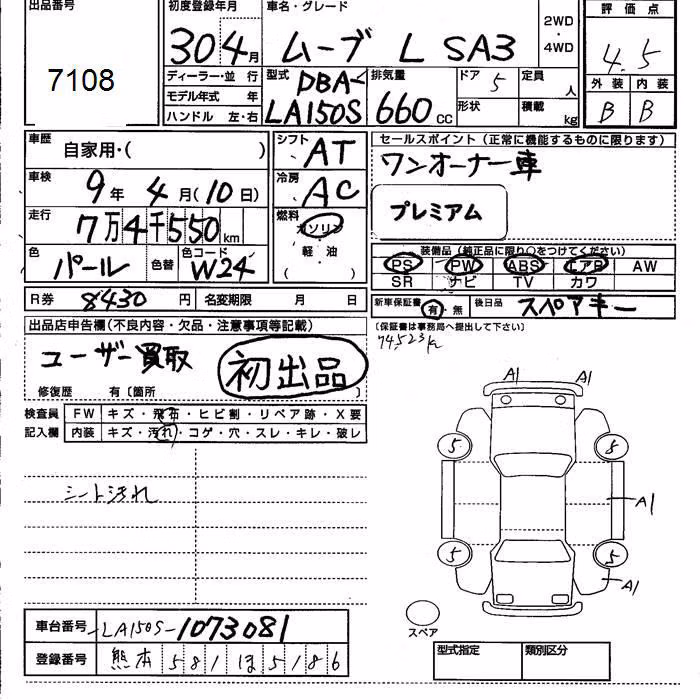 出品番号 初度登録年月 車名・グレード 評価点
7108 30 4月 ムーブ L SA3 2WD・4WD 4.5
ディーラー・並 行 型式 DBA- 排気量 ドア 5 定員 人 外装 内装
モデル年式 年 LA150S 660cc 形状 積載 kg B B
ハンドル 左・右
車歴 自家用・( ) シフト AT セールスポイント (正常に機能するものに限ります)
車検 9年 4月(10日) 冷房 AC ワンオーナー車
走行 7万4千550km 燃料 ガソリン プレミアム
色 パール 色替 色コード W24 軽・油 ( ) 装備品 (純正品に限り○をつけてください)
PS PW ABS エアB AW
SR ナビ TV カワ
R券 8430円 名変期限 月 日 新車保証書 有・無 後日品 スペアキー
出品店申告欄(不良内容・欠品・注意事項等記載) (保証書は事務局へ提出して下さい)
74,523k
ユーザー買取 初出品
修復歴 有〔箇所 〕
検査員 FW キズ・飛石・ヒビ割・リペア跡・X要
記入欄 内装 キズ・汚れ・コゲ・穴・スレ・キレ・破レ
A1 A1
5 8
シート汚れ
A1
5 5
A1
スペア
車台番号 LA150S-1073081
登録番号 熊本 581 ほ 5186
型式指定 類別区分